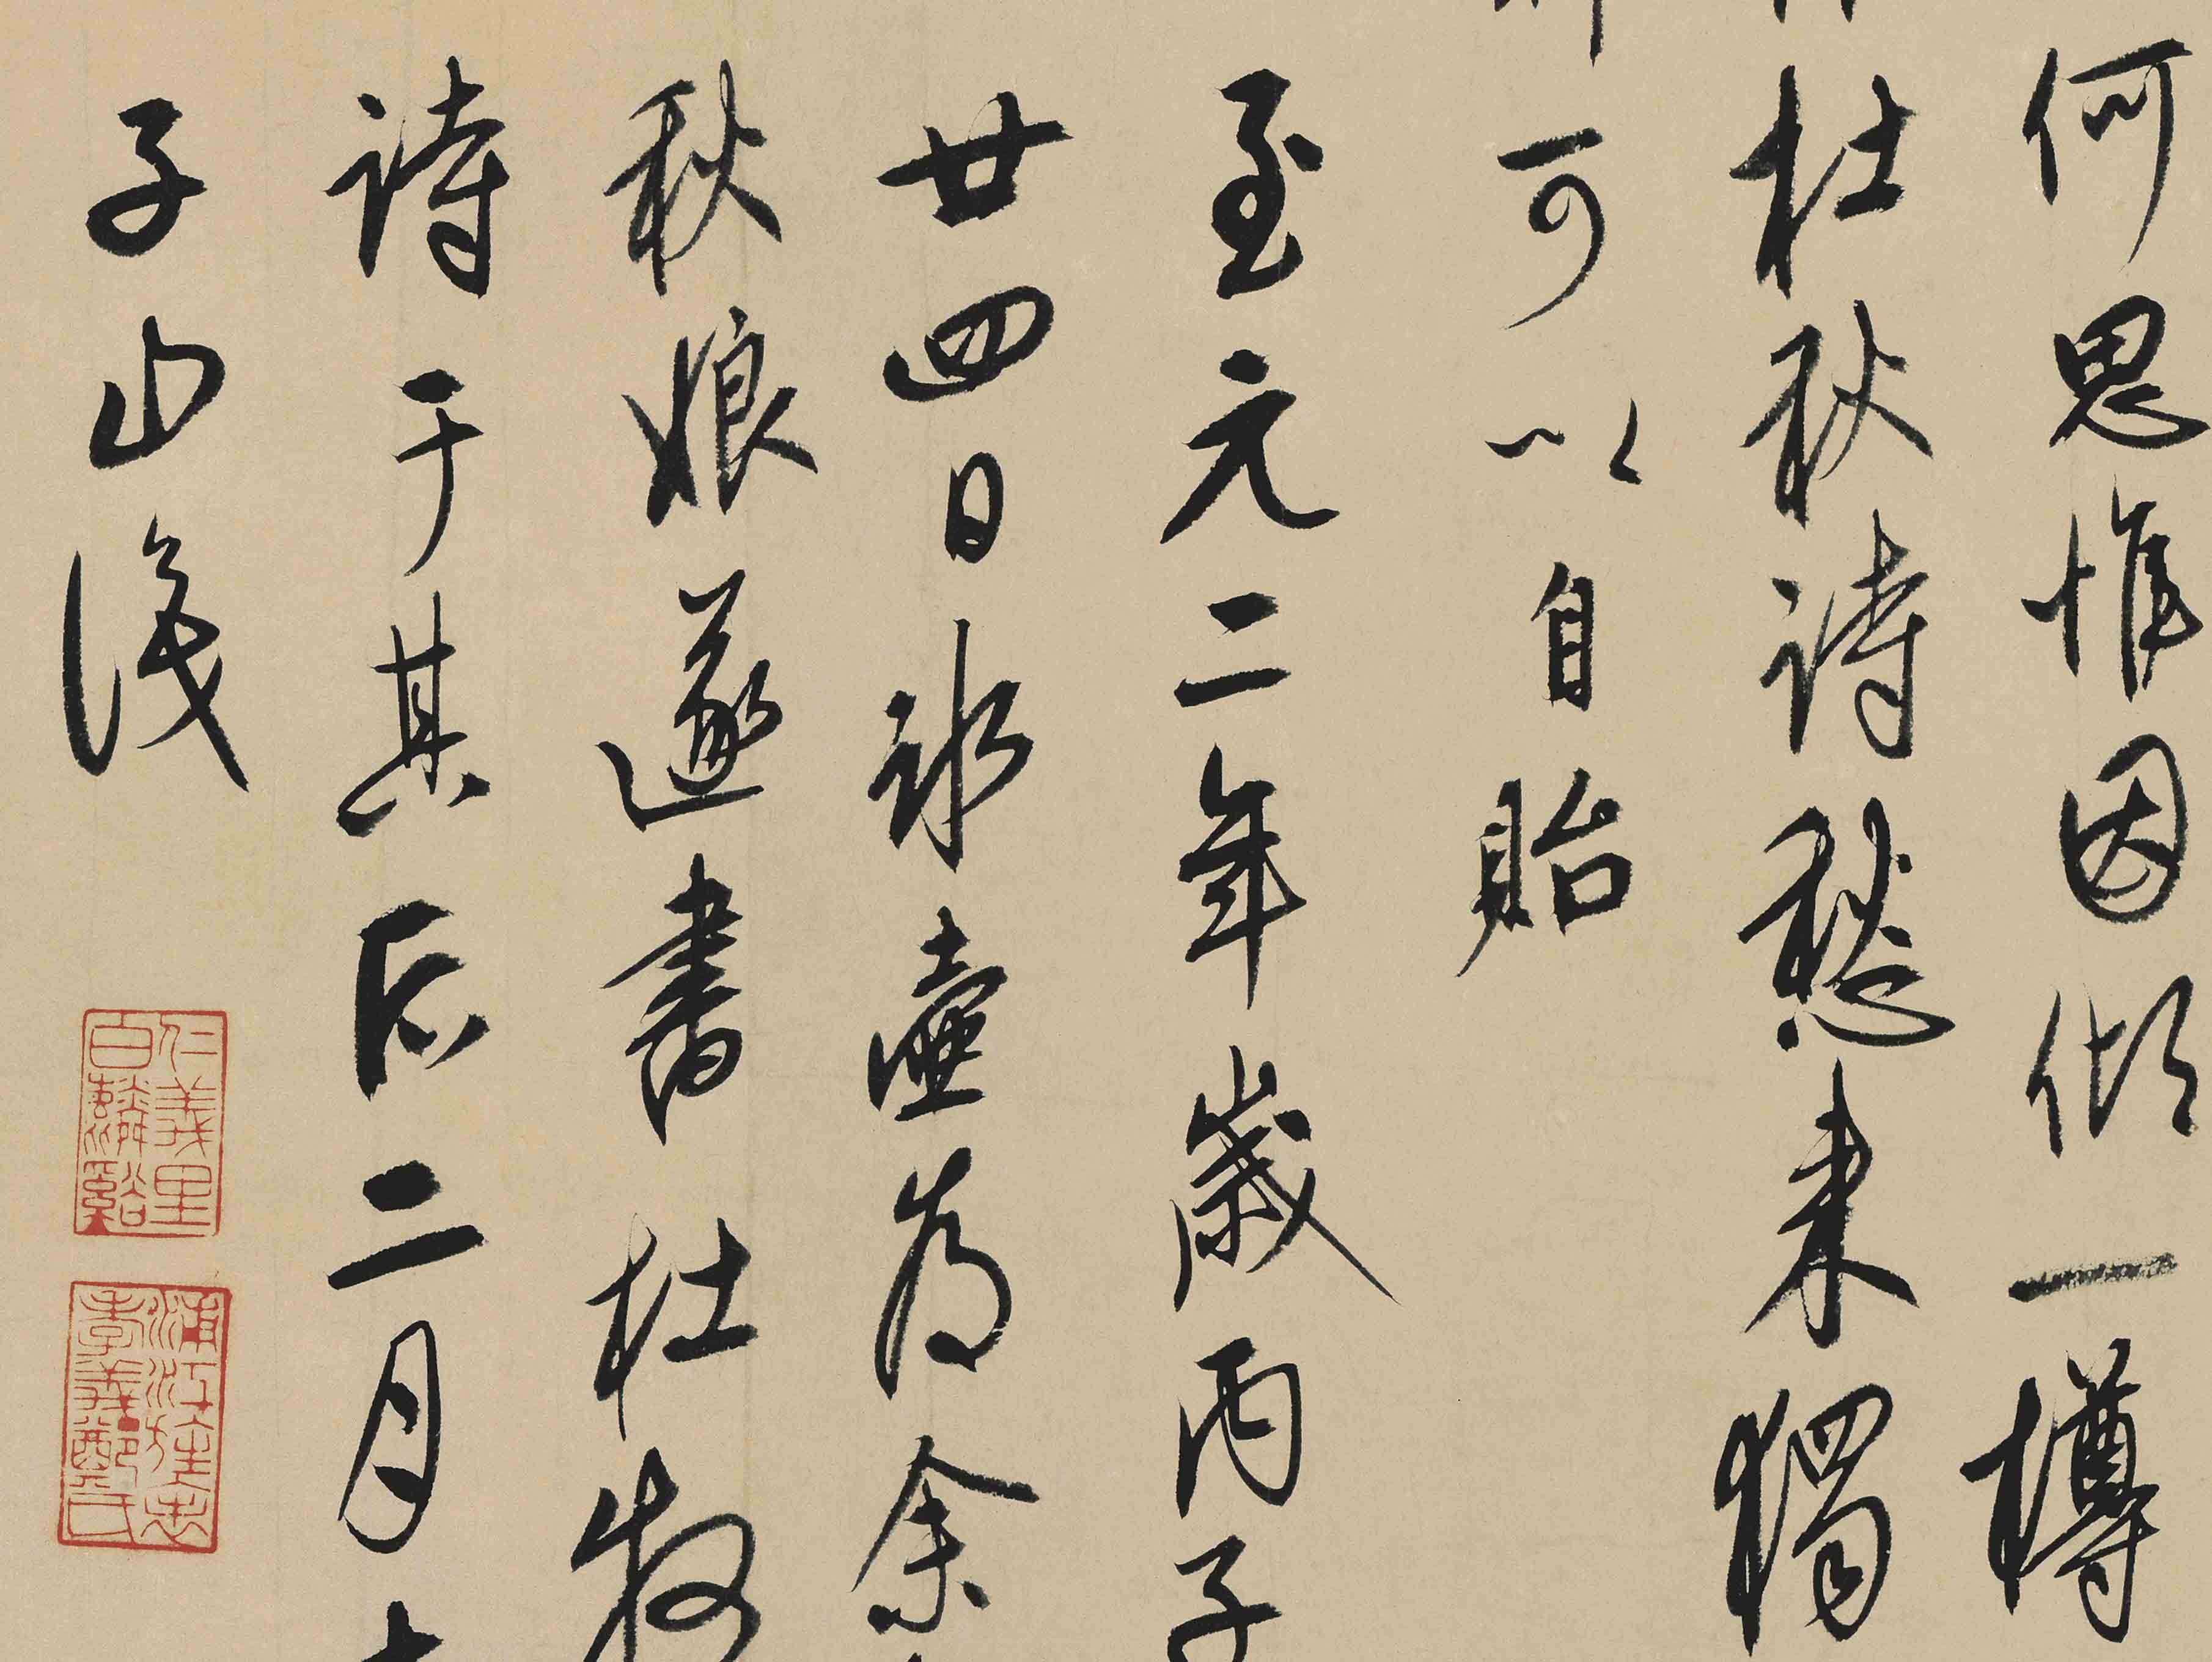 何思惟因傾一樽
杜秋詩愁来獨
可以自貽
至元二年歲丙子
廿四日冰壺为余
秋娘遂書杜牧
詩于其后二月
子山識
仁義里
白麟谿
浦江旌忠
孝義鄭氏